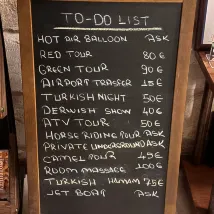 TO-DO LIST
HOT AIR BALLOON ASK
RED TOUR 80 €
GREEN TOUR 90 €
AIRPORT TRASFER 15 €
TURKISH NIGHT 50€
DERWISH SHOW 40€
ATV TOUR 50€
HORSE RIDING TOUR ASK
PRIVATE UNDERGROUND ASK
CAMEL TOUR 45€
ROOM MASSAGE 100€
TURKISH HAMAM 75€
JET BOAT ASK